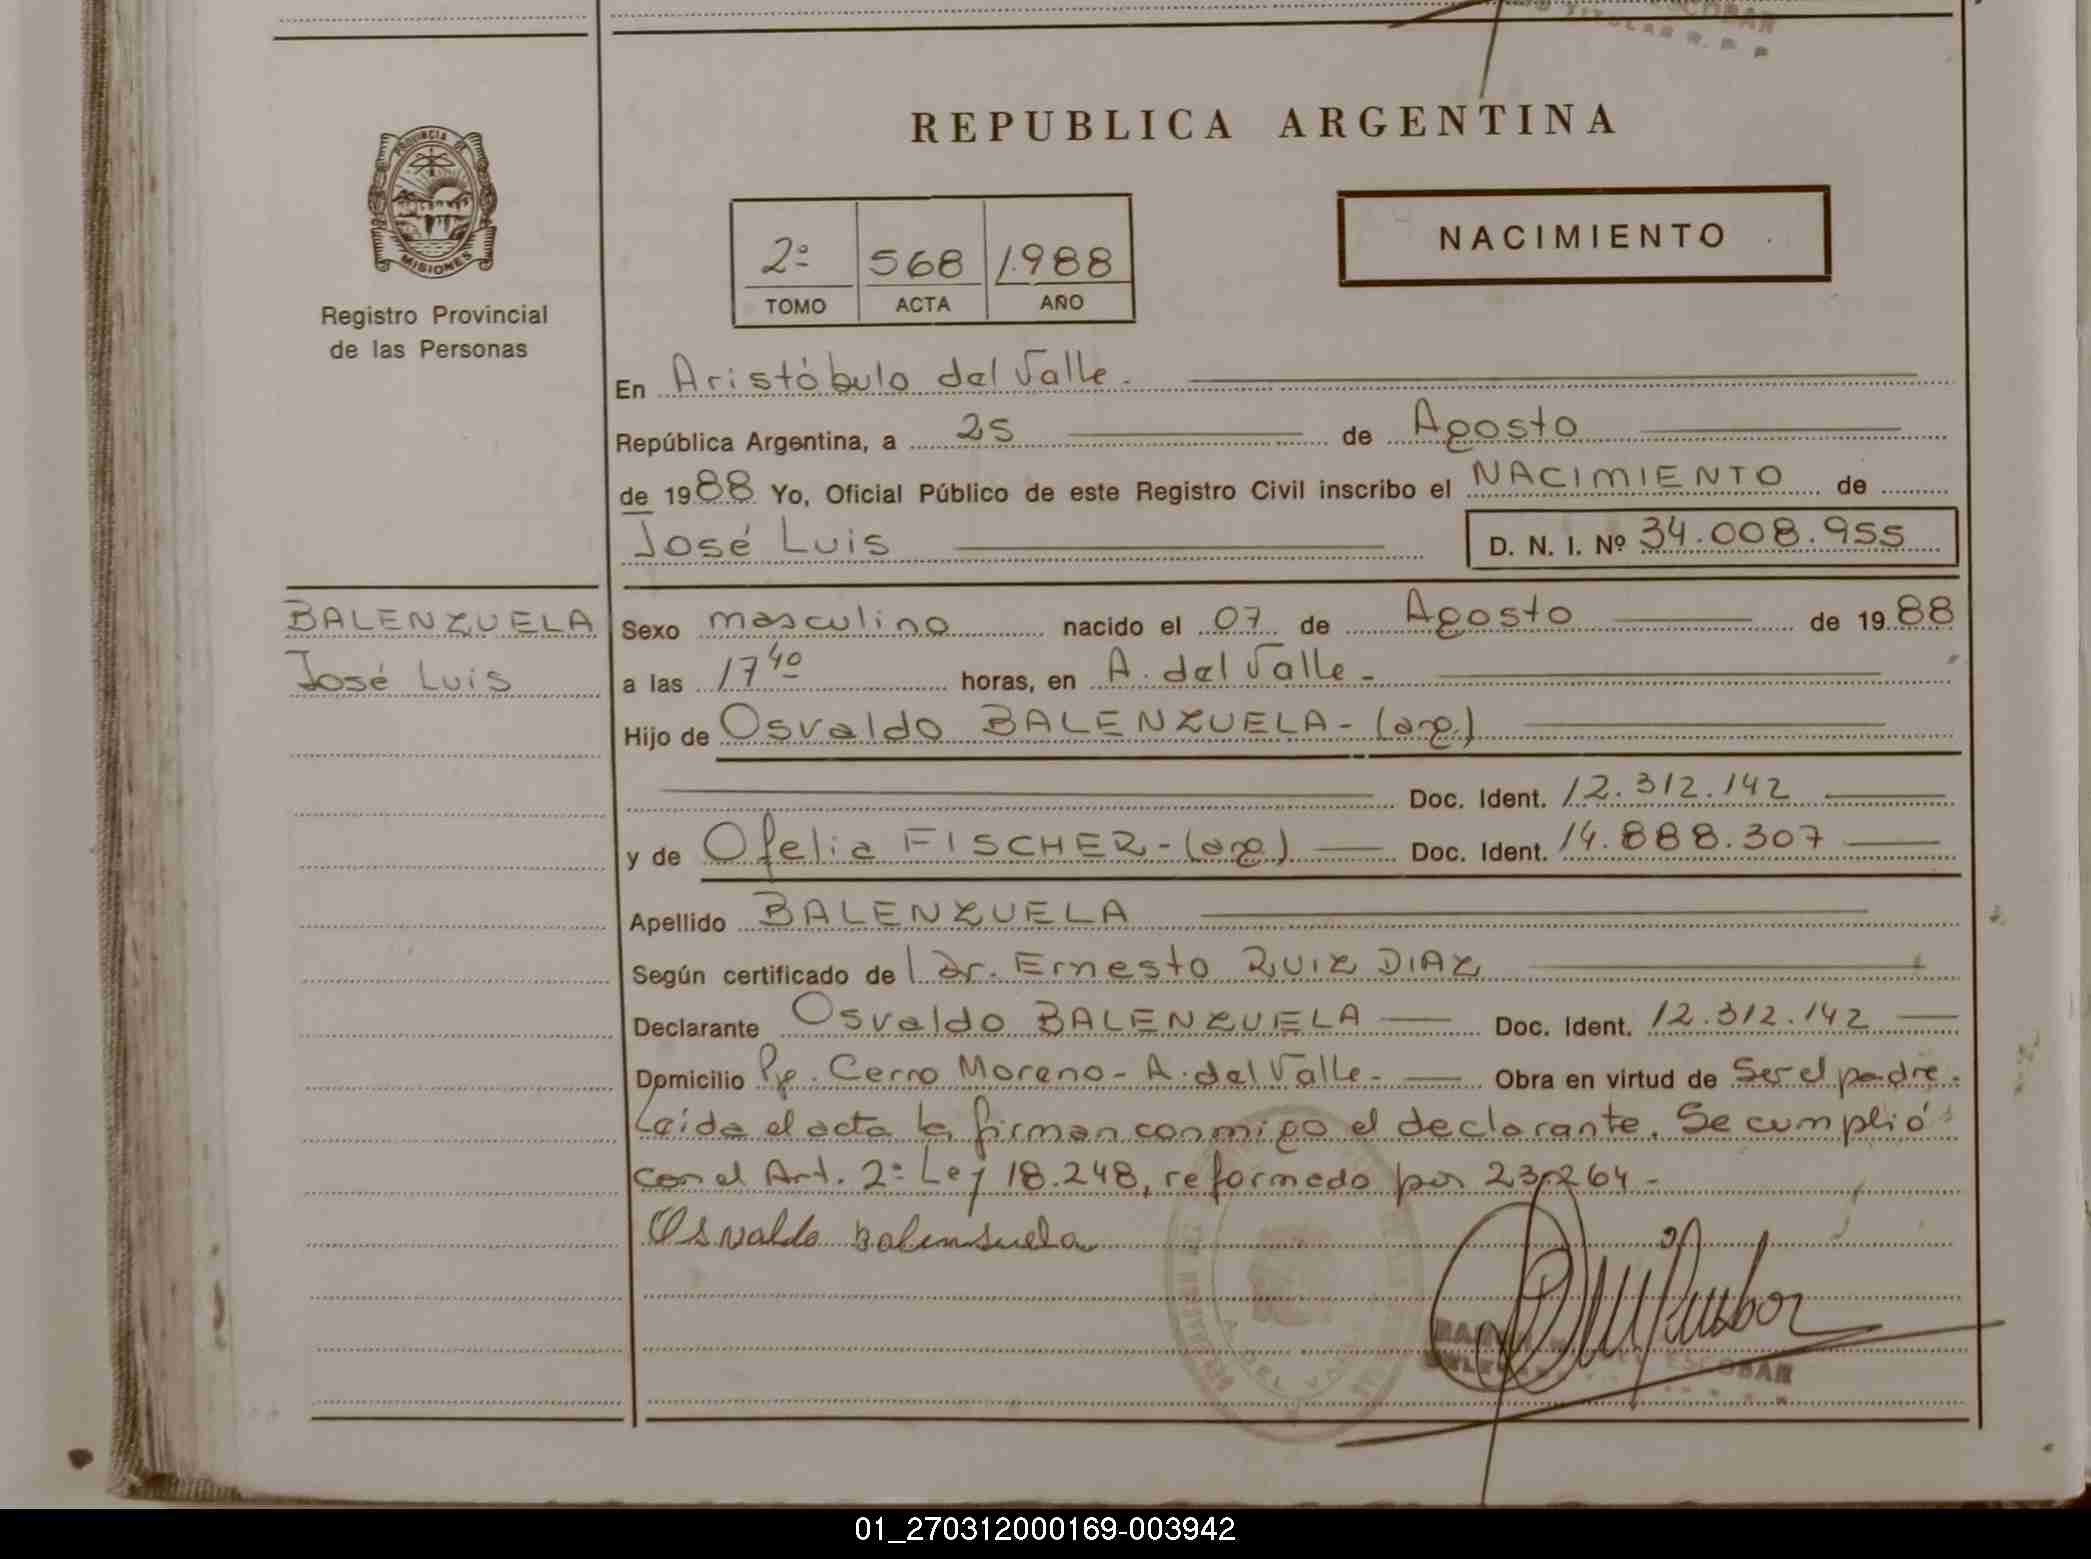 REPUBLICA ARGENTINA
PROVINCIA DE
MISIONES
Registro Provincial
de las Personas
2º 568 1.988
TOMO ACTA AÑO
NACIMIENTO
En Aristóbulo del Valle.
República Argentina, a 25 de Agosto
de 1988 Yo, Oficial Público de este Registro Civil inscribo el NACIMIENTO de
José Luis D. N. I. Nº 34.008.955
BALENZUELA
José Luis
Sexo masculino nacido el 07 de Agosto de 1988
a las 17 40 horas, en A. del Valle -
Hijo de Osvaldo BALENZUELA - (arg.)
Doc. Ident. 12.312.142
y de Ofelia FISCHER - (arg.) Doc. Ident. 14.888.307
Apellido BALENZUELA
Según certificado de Dr. Ernesto RUIZ DIAZ
Declarante Osvaldo BALENZUELA Doc. Ident. 12.312.142
Domicilio Pje. Cerro Moreno - A. del Valle - Obra en virtud de Ser el padre.
Leída el acta la firman conmigo el declarante. Se cumplió
con el Art. 2º Ley 18.248, reformado por 23.264 -
Osvaldo Balensuela
ESCOBAR
01_270312000169-003942